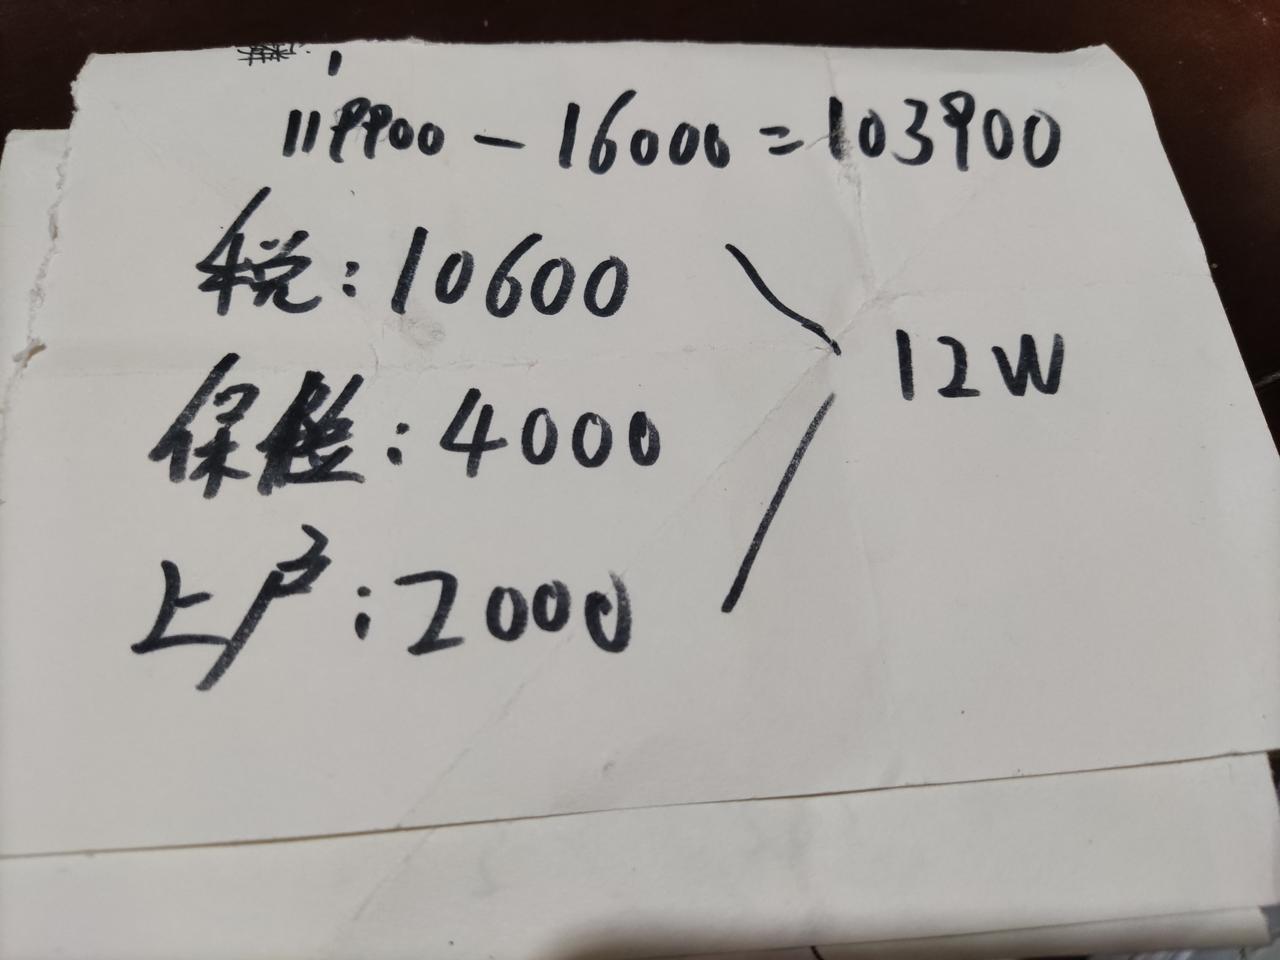 119900-16000=103900
税:10600
保险:4000
12W
上户:2000